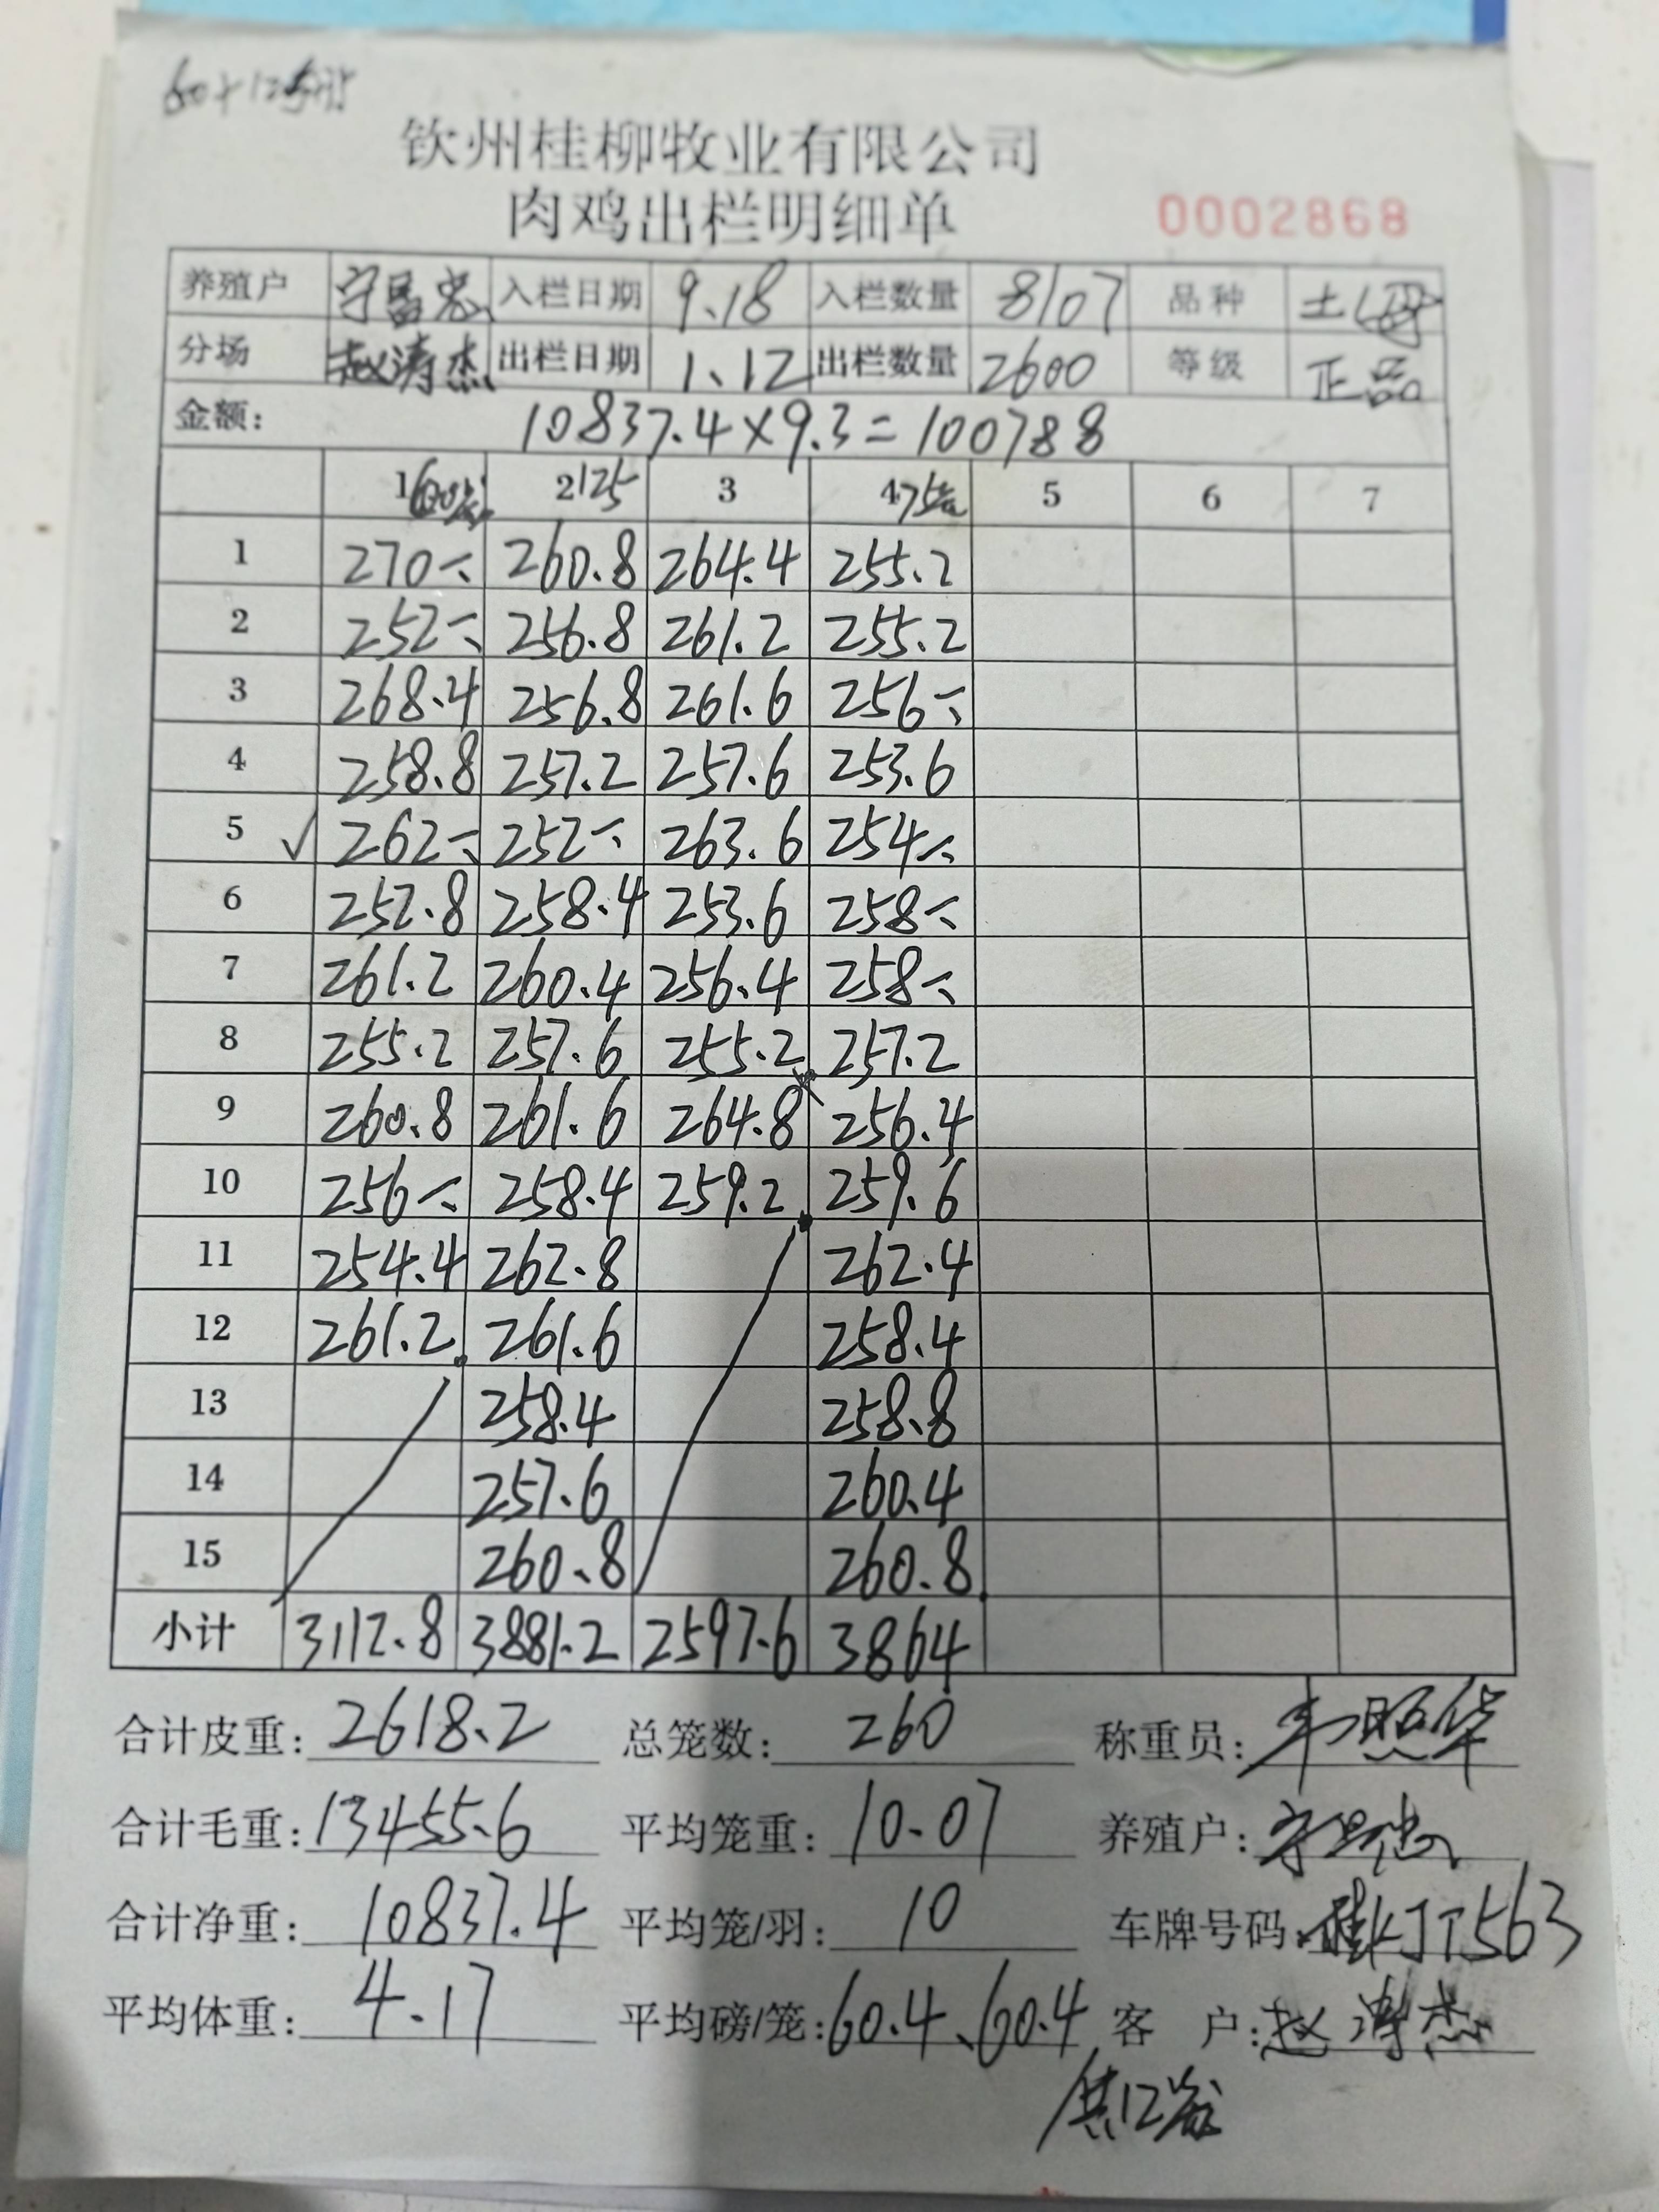 钦州桂柳牧业有限公司
肉鸡出栏明细单 0002868
养殖户 宁昌忠 入栏日期 9.18 入栏数量 8107 品种 土
分场 赵涛杰 出栏日期 1.12 出栏数量 2600 等级 正品
金额: 10837.4×9.3=100788
1 60 2 125 3 4 75 5 6 7
1 270 260.8 264.4 255.2
2 252 256.8 261.2 255.2
3 268.4 256.8 261.6 256
4 258.8 257.2 257.6 253.6
5 √ 262 252 263.6 254
6 252.8 258.4 253.6 258
7 261.2 260.4 256.4 258
8 255.2 257.6 255.2 257.2
9 260.8 261.6 264.8 256.4
10 256 258.4 259.2 259.6
11 254.4 262.8 262.4
12 261.2 261.6 258.4
13 258.4 258.8
14 257.6 260.4
15 260.8 260.8
小计 3112.8 3881.2 2597.6 3864
合计皮重: 2618.2 总笼数: 260 称重员: 韦照华
合计毛重: 13455.6 平均笼重: 10.07 养殖户:
合计净重: 10837.4 平均笼/羽: 10 车牌号码: 563
平均体重: 4.17 平均磅/笼: 60.4、60.4 客 户: 赵涛杰